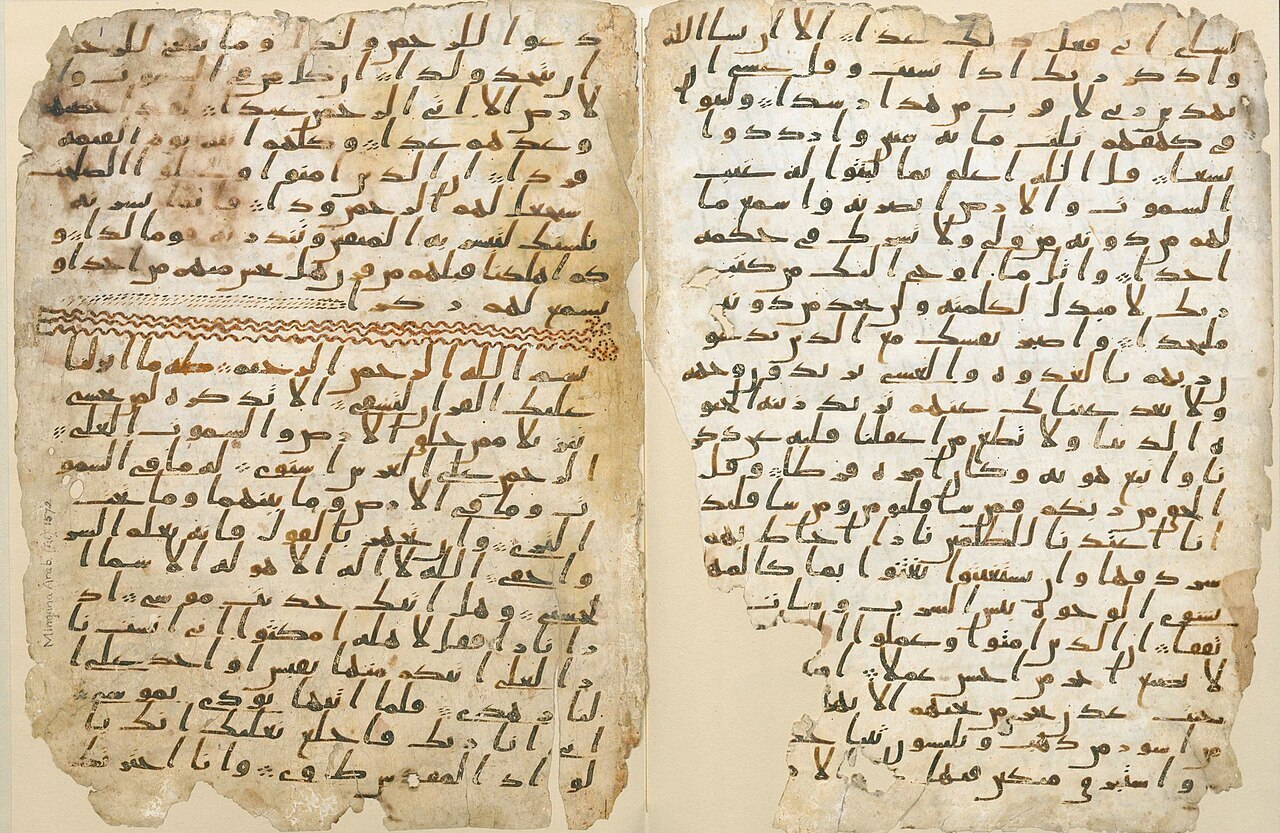 لشاى انى فعل ذلك غدا الا ان يشا الله
واذكر ربك اذا نسيت وقل عسى ان
يهدين ربى لاقرب من هذا رشدا ولبثوا
فى كهفهم ثلث مائة سنين وازددوا
تسعا قل الله اعلم بما لبثوا له غيب
السموت والارض ابصر به واسمع ما
لهم من دونه من ولى ولا يشرك فى حكمه
احدا واتل ما اوحى اليك من كتب
ربك لا مبدل لكلمته ولن تجد من دونه
ملتحدا واصبر نفسك مع الذين يدعو
ن ربهم بالغدوة والعشى يريدون وجهه
ولا تعد عيناك عنهم تريد زينة الحيو
ة الدنيا ولا تطع من اغفلنا قلبه عن ذكر
نا واتبع هويه وكان امره فرطا وقل
الحق من ربكم فمن شا فليومن ومن شا فليكفر
انا اعتدنا للظلمين نارا احاط بهم
سردقها وان يستغيثوا يغثوا بما كالمهل
يشوى الوجوه بئس الشرب وسات
تفقا ان الذين امنوا وعملوا
لا نضيع اجر من احسن عملا
جنت عدن تجرى من تحتهم الانهر
من اسور من ذهب ويلبسون ثيبا
واستبرق متكين فيها
دعوا للرحمن ولدا وما ينبغى للرحمن
ان يتخذ ولدا ان كل من فى السموت وا
لارض الا اتى الرحمن عبدا لقد احصهم
وعدهم عدا وكلهم اتيه يوم القيمة
فردا ان الذين امنوا وعملوا الصلحت
سيجعل لهم الرحمن ودا فانما يسرنه
بلسنك لتبشر به المتقين وتنذر به قوما لدا و
كم اهلكنا قبلهم من قرن هل تحس منهم من احد او
تسمع لهم ركزا
بسم الله الرحمن الرحيم طه ما انزلنا
عليك القران لتشقى الا تذكرة لمن يخشى
تنزيلا ممن خلق الارض والسموت العلى
الرحمن على العرش استوى له ما فى السمو
ت وما فى الارض وما بينهما وما تحت
الثرى وان تجهر بالقول فانه يعلم السر
واخفى الله لا اله الا هو له الاسما ا
لحسنى وهل اتيك حديث موسى اذ
را نارا فقل لاهله امكثوا انى انست نا
را لعلى اتيكم منها بقبس او اجد على ا
لنار هدى فلما اتيها نودى يموسى
انى انا ربك فاخلع نعليك انك با
لواد المقدس طوى وانا اخترتك
Mingana Arab. (Ar.) 1572